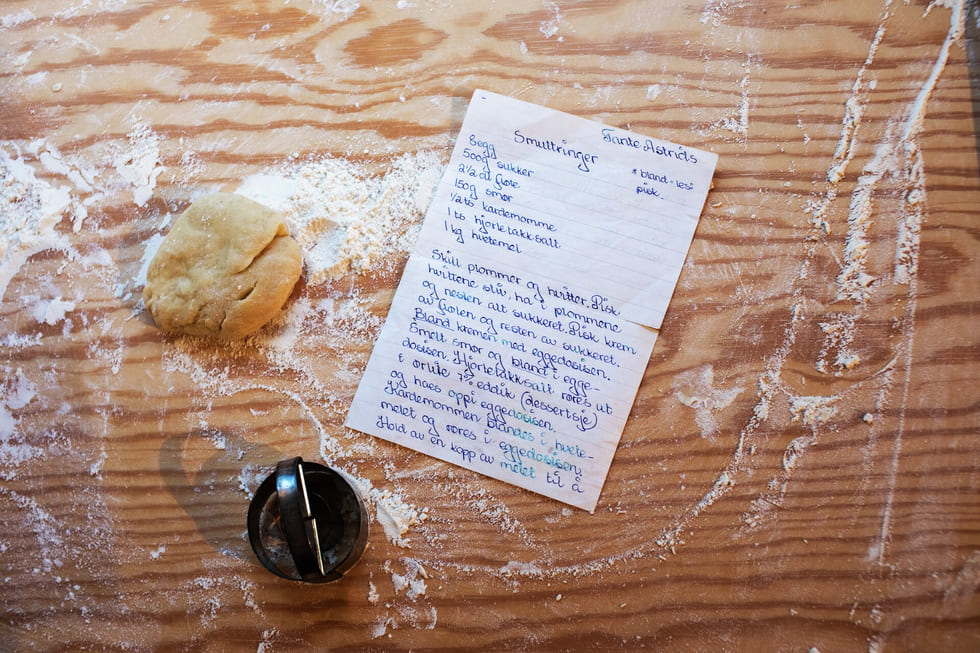 Tante Astrids
Smultringer
8egg
500g sukker
2½ dl fløte
150g smør
½ ts kardemomme
1 ts hjortetakksalt
1 kg hvetemel
* bland = les
pisk.
Skill plommer og hvitter. Pisk
hvittene stiv, ha i plommene
og nesten alt sukkeret. Pisk krem
av fløten og resten av sukkeret.
Bland kremen med eggedosisen.
Smelt smør og bland i egge-
dosisen. Hjortetakksalt røres ut
i ørlite 7% eddik (dessertskje)
og haes oppi eggedosisen.
Kardemommen blandes i hvete-
melet og røres i eggedosisen.
Hold av en kopp av melet til å